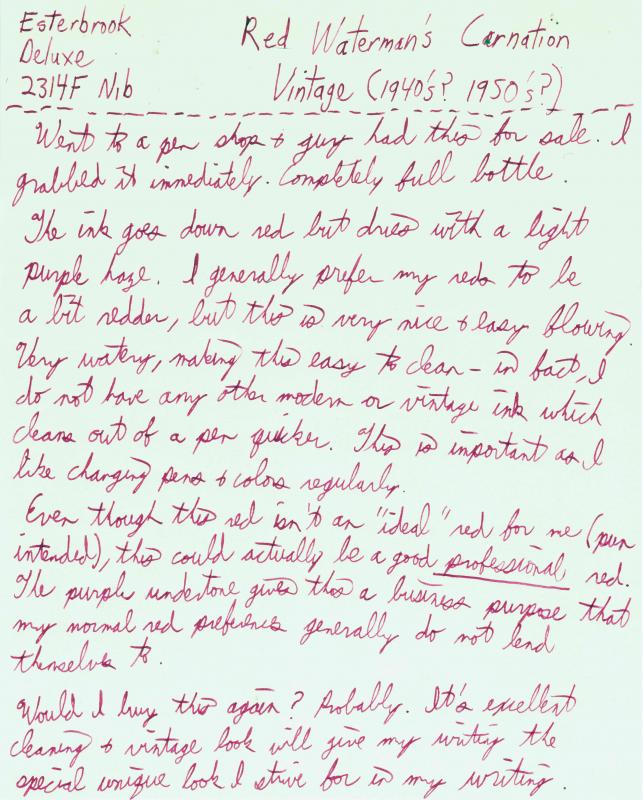 Esterbrook
Deluxe
2314F Nib
Red Waterman's Carnation
Vintage (1940's? 1950's?)
Went to a pen shop & guy had this for sale. I
grabbed it immediately. Completely full bottle.
The ink goes down red but dries with a light
purple haze. I generally prefer my reds to be
a bit redder, but this is very nice & easy flowing.
Very watery, making this easy to clean - in fact, I
do not have any other modern or vintage ink which
cleans out of a pen quicker. This is important as I
like changing pens & colors regularly.
Even though this red isn't an "ideal" red for me (pun
intended), this could actually be a good professional red.
The purple undertone gives this a business purpose that
my normal red preferences generally do not lend
themselves to.
Would I buy this again? Probably. It's excellent
cleaning & vintage look will give my writing the
special unique look I strive for in my writing.